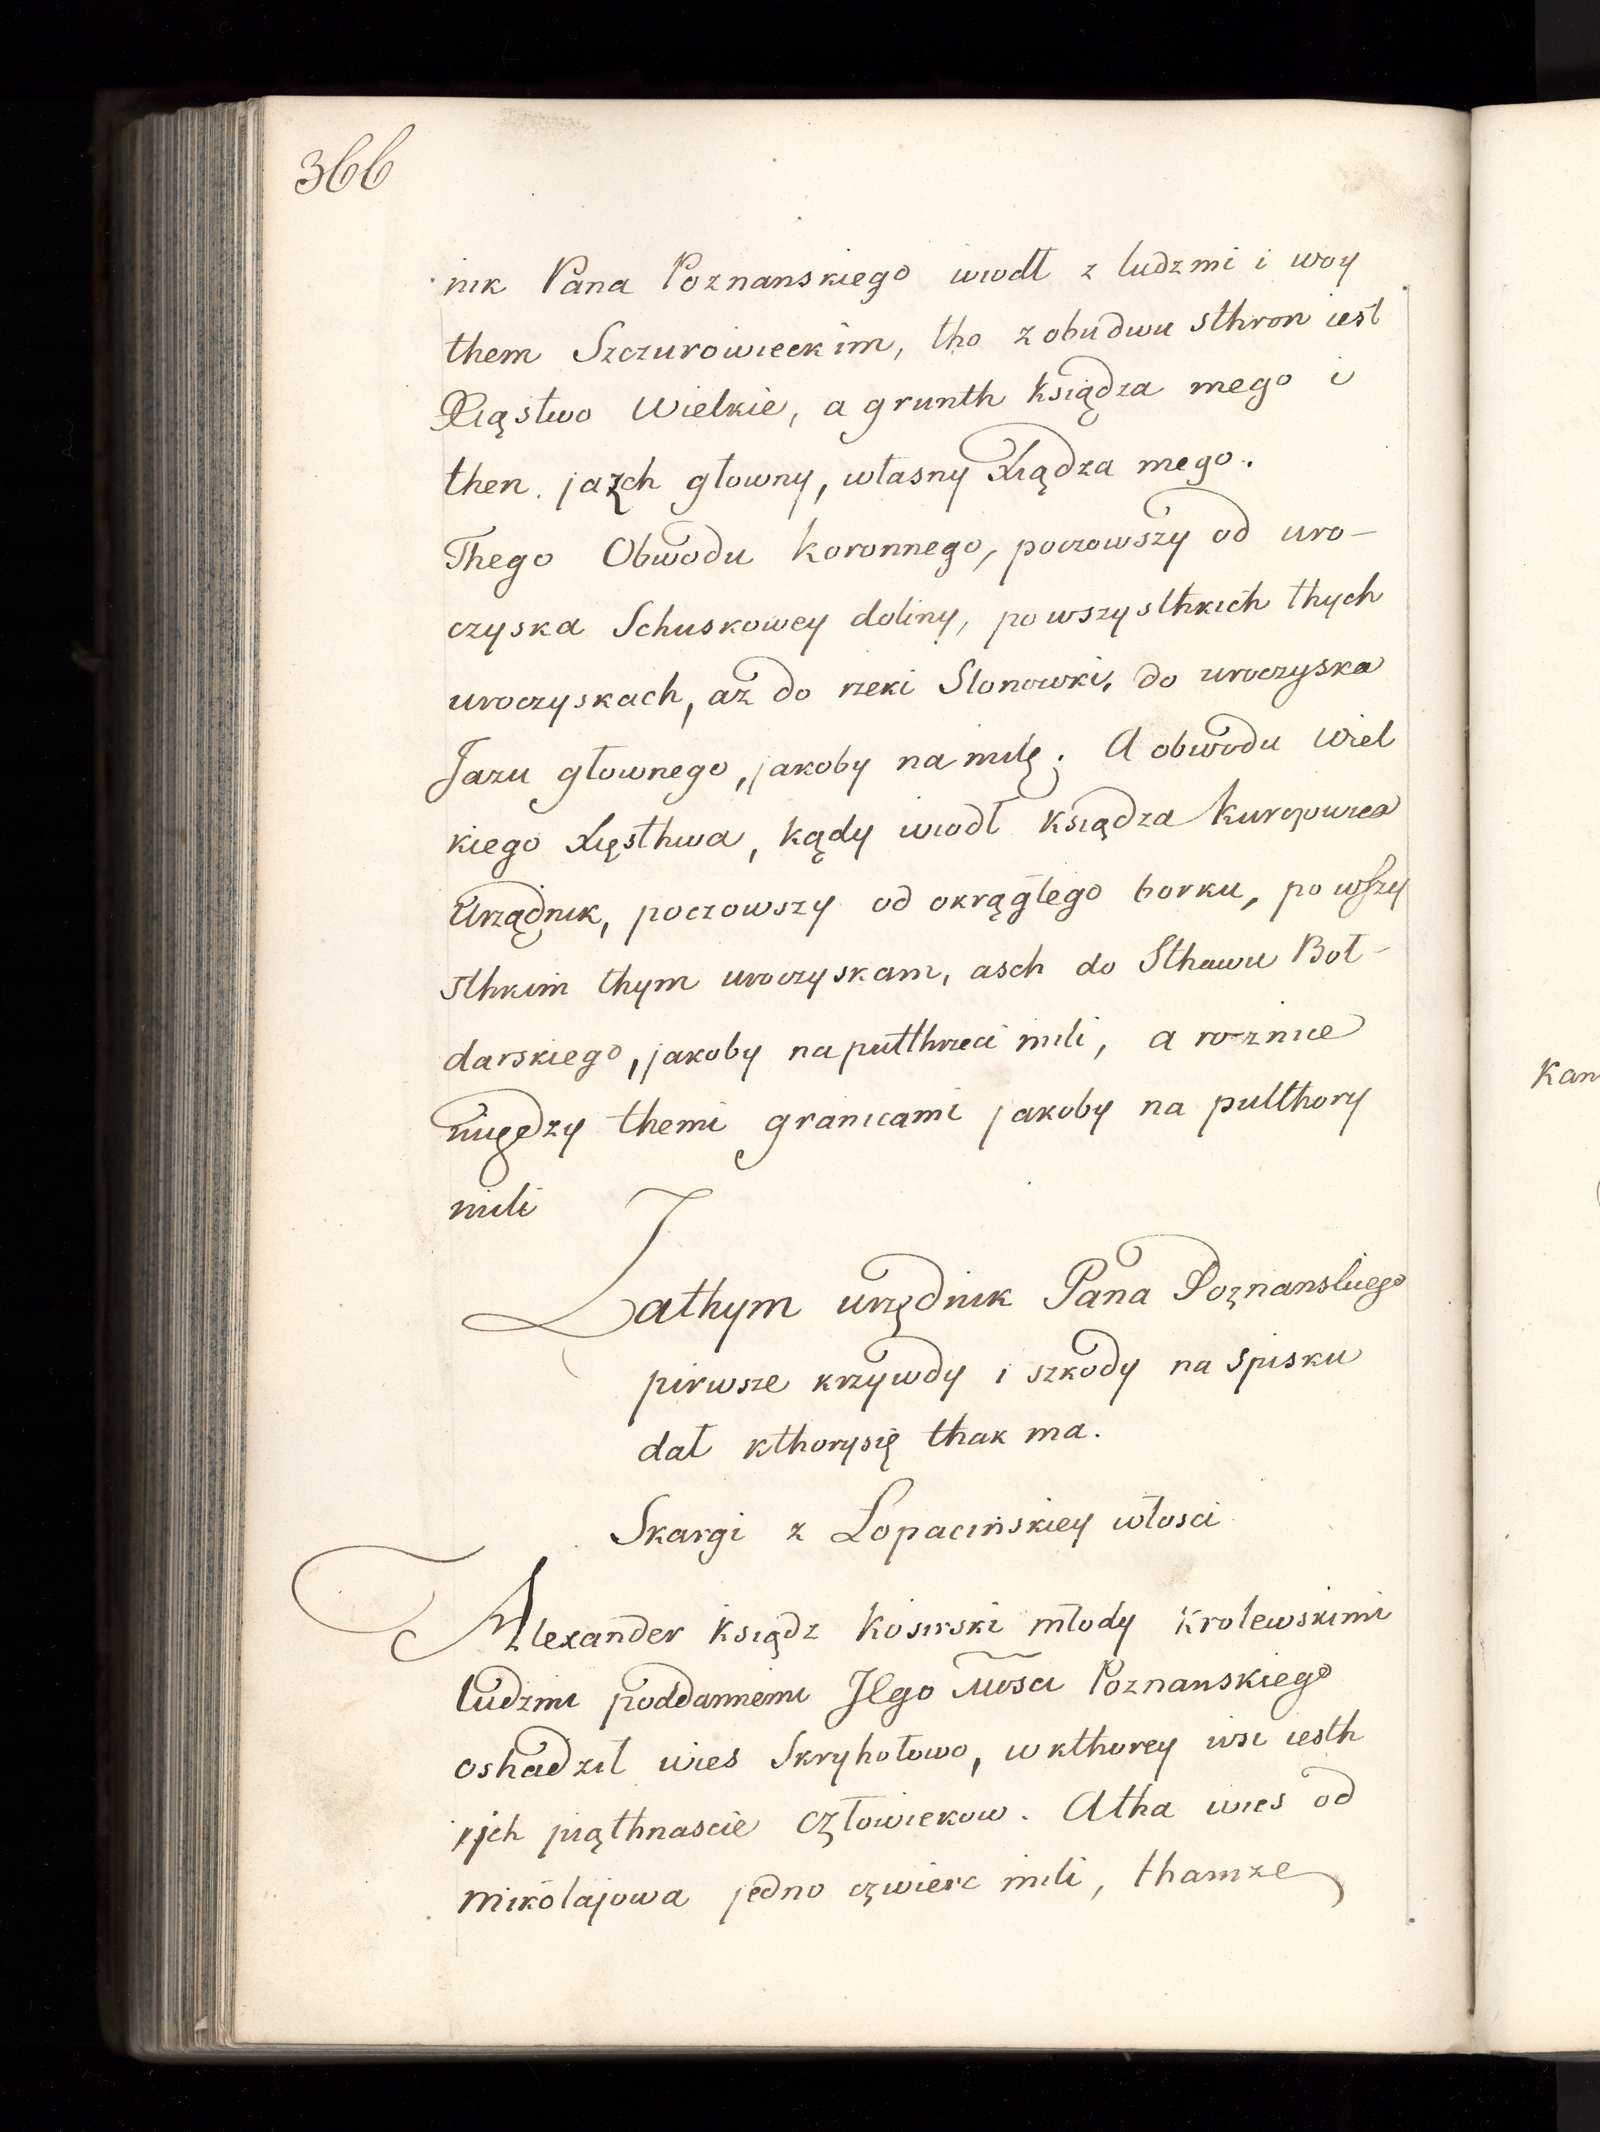 366
nik Pana Poznanskiego wiodł z ludzmi i woy
them Szczurowieckim, tho z obudwu sthron iest
Xiąstwo Wielkie, a grunth książa mego i
then jazch głowny, własny Xiądza mego.
Thego Obwodu koronnego, poczowszy od uro-
czyska Schuskowey doliny, po wszysthkich thych
uroczyskach, aż do rzeki Slonowki, do uroczyska
Jazu głownego, jakoby na milę; A obwodu Wiel
kiego Xięsthwa, kądy wiodł Ksiądza Kuropowica
Urządnik, poczowszy od okrąglego borku, po wszy
sthkim thym uroczyskam, asch do Sthawu Boł-
darskiego, jakoby na pułthrzeci mili, a roznice
między themi granicami jakoby na pułthory
mili
Zathym urzędnik Pana Poznanskiego
pirwsze krzywdy i szkody na spisku
dał kthorysię thak ma.
Skargi z Łopacińskiey włosci
Alexander ksiądz Kosirski młody krolewskimi
ludzmi poddannemi JEgo Mosci Poznanskiego
oshadził wies Skryhołowo, w kthorey wsi iesth
ijch piąthnascie człowiekow. Atha wies od
Mikołajowa jedno czwierc mili, thamze
Kan